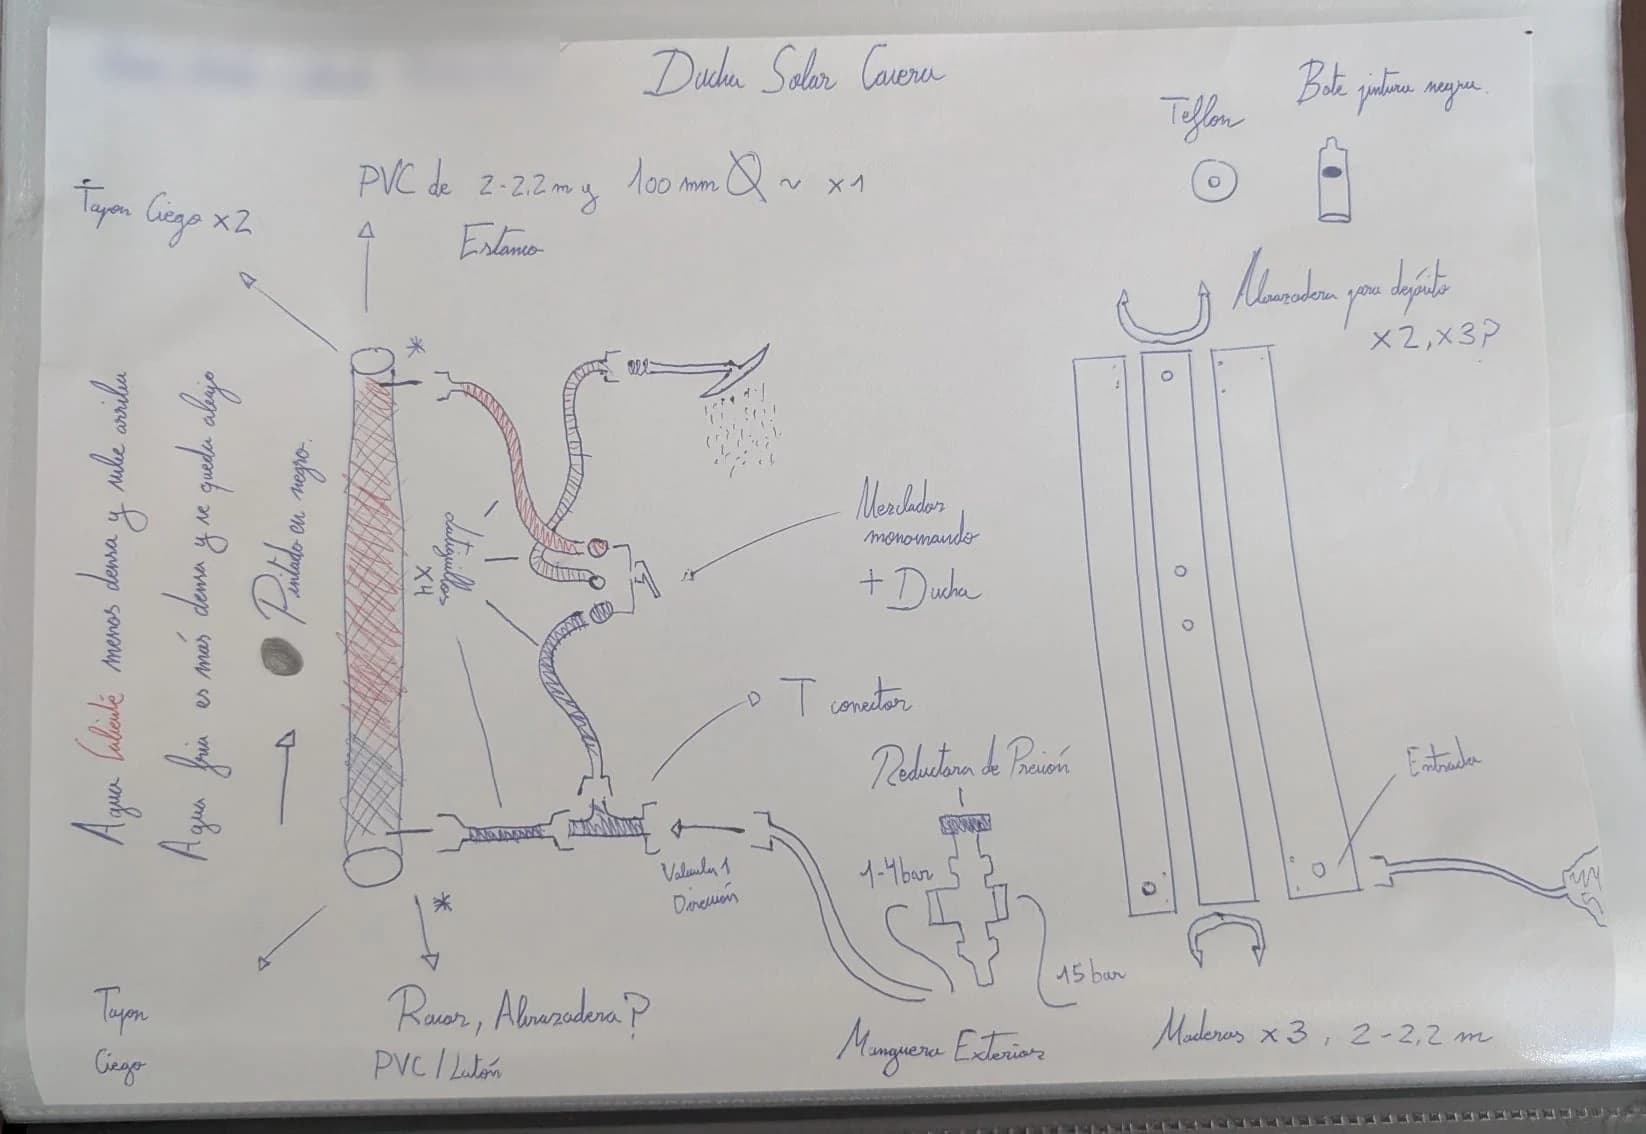 Ducha Solar Casera
Teflon
Bote pintura negra.
PVC de 2-2,2m y 100 mm Ø ~ x1
Estanco
Tapon Ciego x2
Abrazadera para depósito
x2, x3?
*
Agua Caliente menos densa y sube arriba
Agua fria es más densa y se queda abajo
Pintado en negro.
Latiguillos
x4
Mezclador
monomando
+ Ducha
T conector
Reductora de Presión
1-4bar
15 bar
Valvula 1
Dirección
Entrada
*
Tapon
Ciego
Racor, Abrazadera?
PVC / Latón
Manguera Exterior
Maderas x3, 2-2,2 m